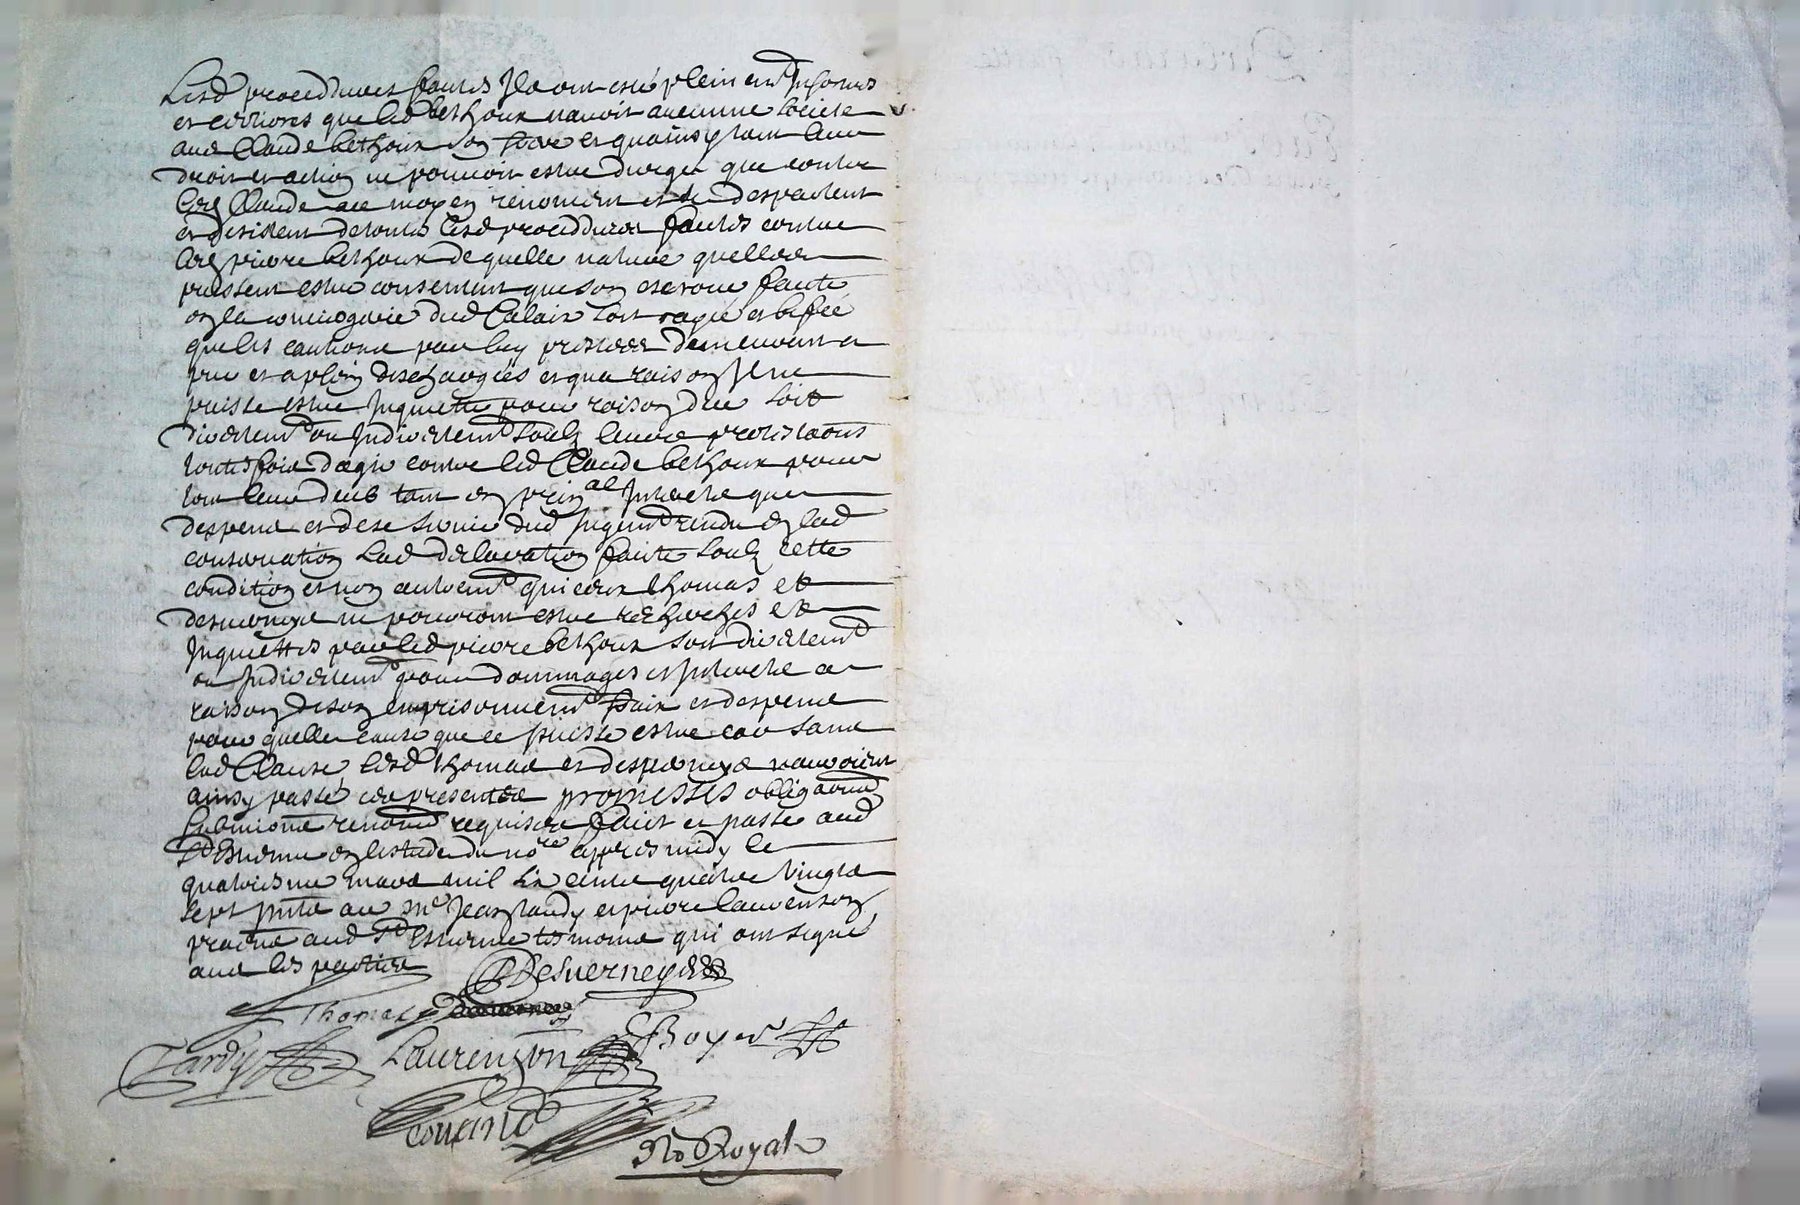 Lesd procedures faites Ils ont esté pleinemt Informés
et certiores que led bethoux navoit aucunne societe
avec Claude bethoux son frere et quainsy tout leur
droit et action ne pouvoit estre diriger que contre
led Claude au moyen renoncent et se despartent
et desistent de toutes lesd procedures faites contre
led pierre bethoux de quelle nature quelles
puissent estre consentent que son escroue faite
en la conciergerie dud Palais soit rayé et biffée
que les cautions par luy prestees demeurent a
pur et a plein deschargées et qua raison Il ne
puisse estre Inquietté pour raison de ce soit
directemt ou Indirectemt soubz leurs protestaons
toutesfois dagir contre led Claude bethoux pour
tout leur deub tant en prinal Interets que
despens et de se servir dud Jugemt rendu en lad
conservation Lad declaration faite soubz cette
condition et non autremt quiceux thomas et
desverneys ne pourront estre recherchés et
Inquiettés par led pierre bethoux soit directemt
ou Indirectemt pour dommages et Interets a
raison de son emprisonnemt fraix et despens
pour quelle cause que ce puisse estre car sans
lad Clause lesd thomas et desverneys nauroient
ainsy passé ces presentes promesses obligaons
submions renond requises faict et passé aud
St Estienne en lestude du nore appres midy le
quatorziesme mars mil six cents quatre vingts
sept pnts au Me Jean tardy et pierre laurenson
praciens aud St Estienne tesmoins qui ont signé
avec les parties Desverneys
Thomas
Tardy Laurenson Boyer
No Royal